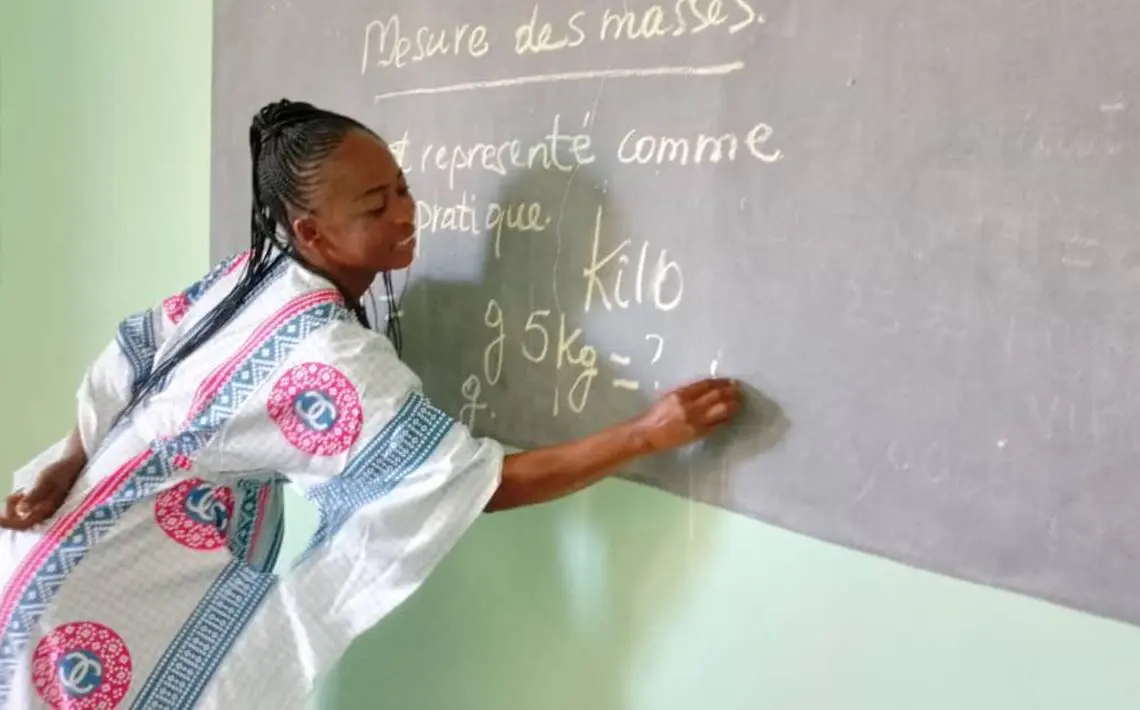 Mesure des masses.
representé comme
pratique.
Kilo
g 5kg = ?
g.